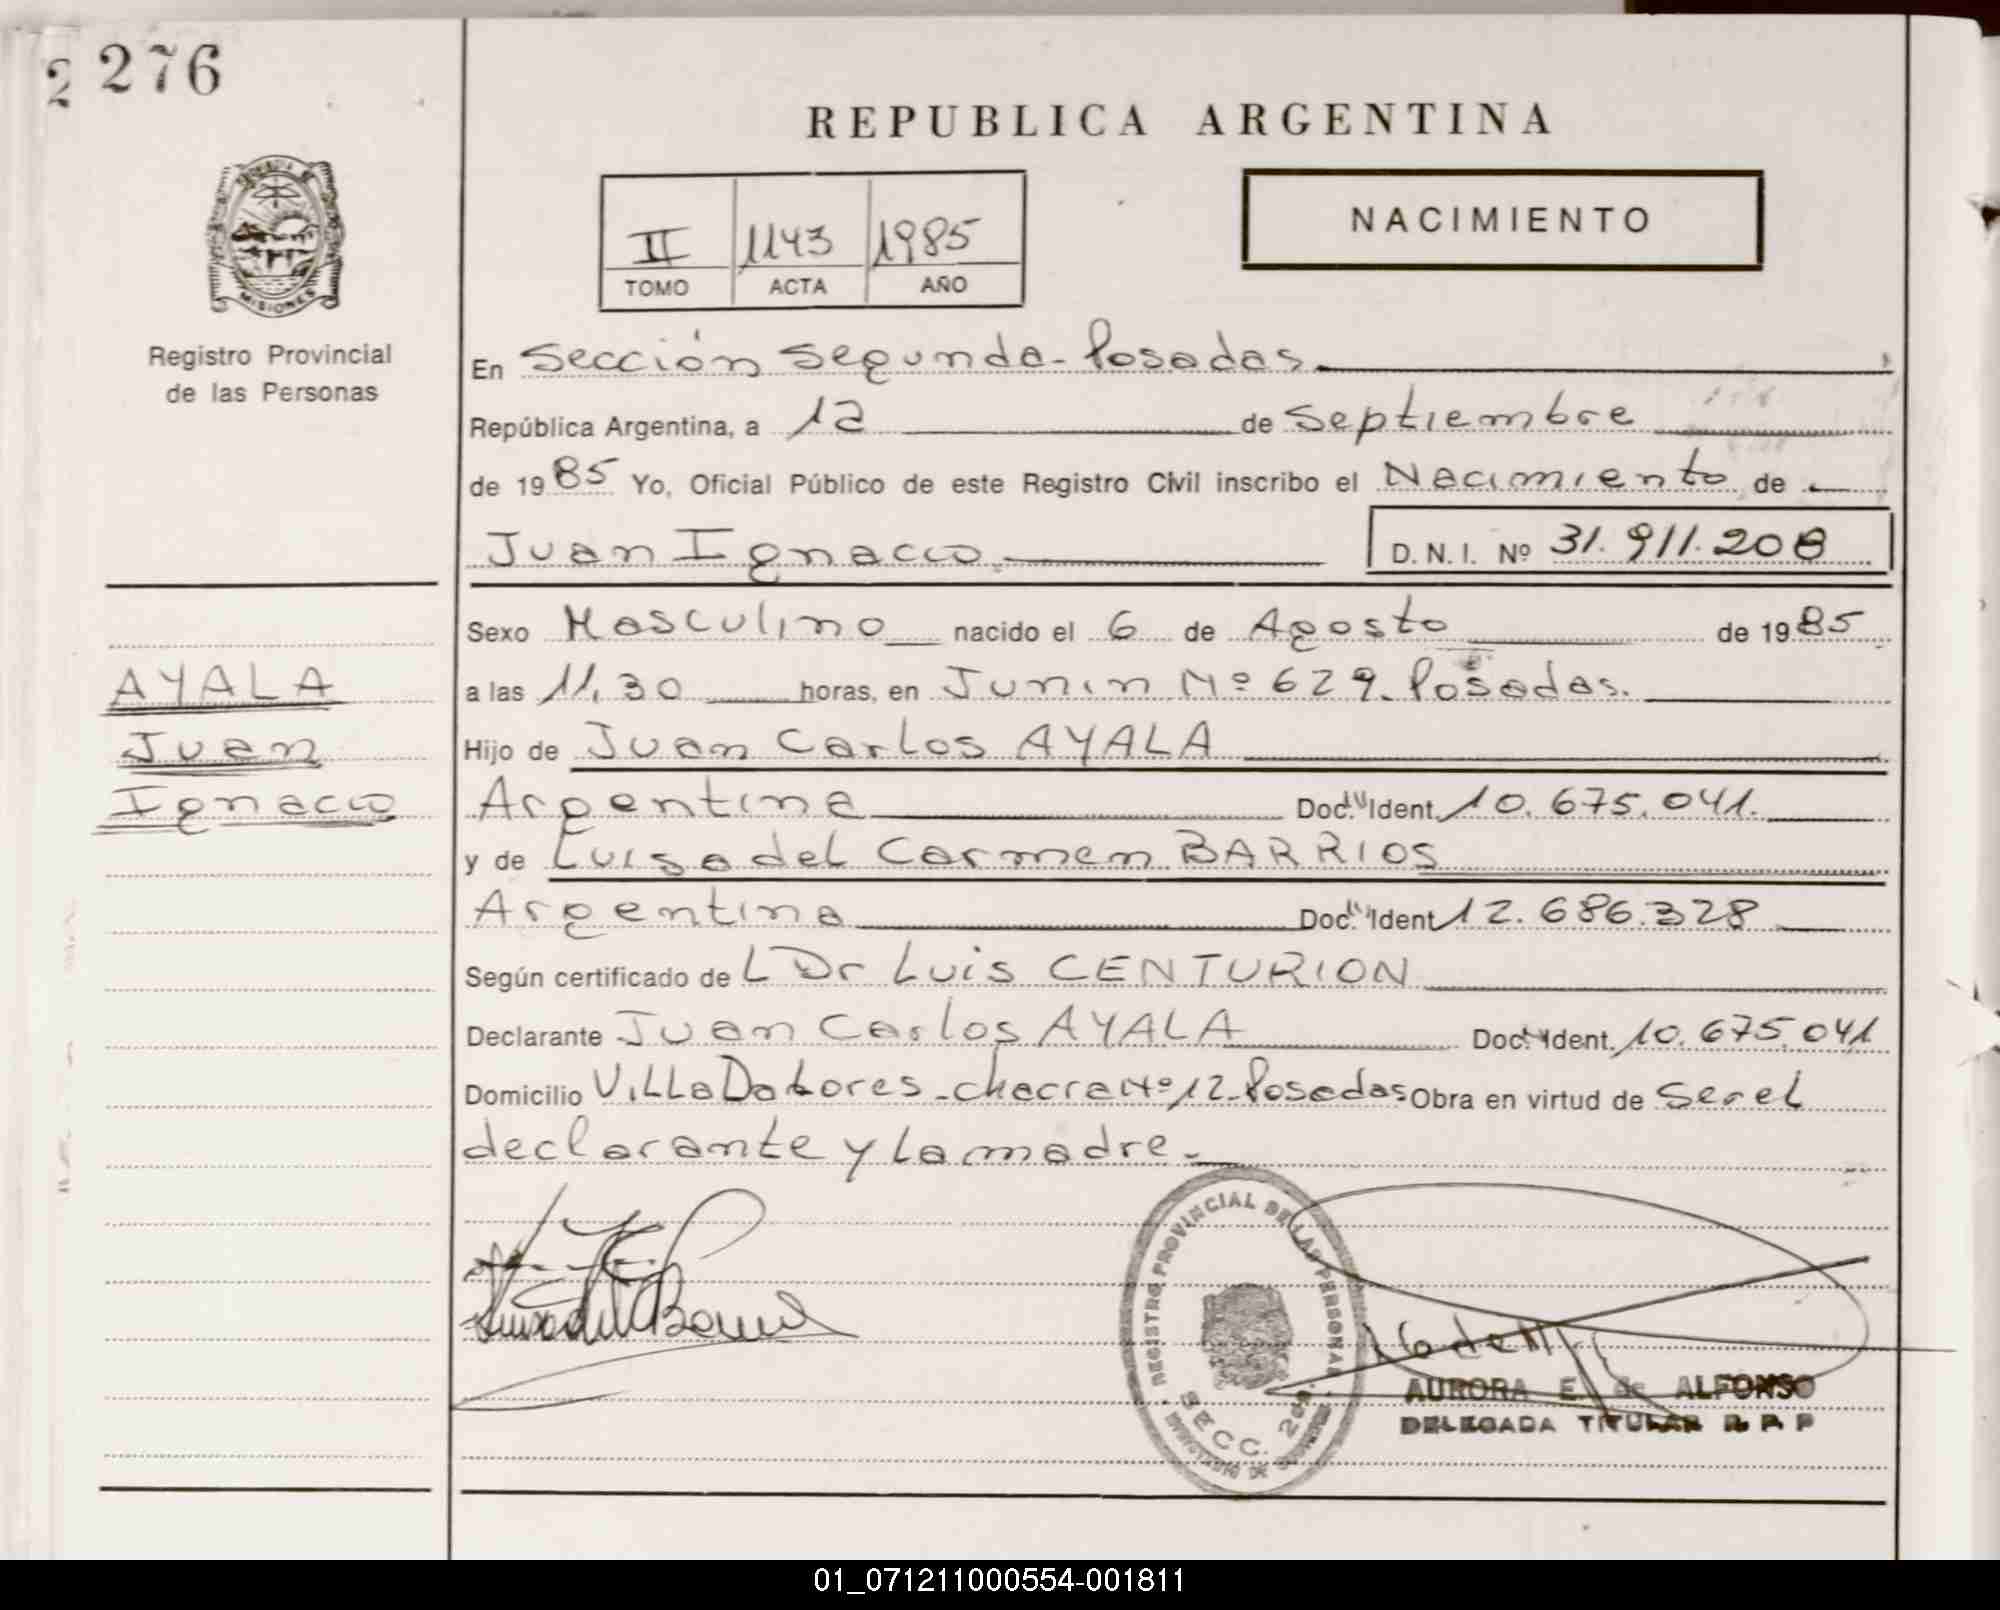 2 276
REPUBLICA ARGENTINA
MISIONES
Registro Provincial
de las Personas
II 1143 1985
TOMO ACTA AÑO
NACIMIENTO
En Sección Segunda - Posadas.
República Argentina, a 12 de Septiembre
de 1985 Yo, Oficial Público de este Registro Civil inscribo el Nacimiento de
Juan Ignacio. D. N. I. Nº 31.911.208
Sexo Masculino nacido el 6 de Agosto de 1985
a las 11,30 horas, en Junin Nº 629. Posadas.
AYALA
Juan
Ignacio
Hijo de Juan Carlos AYALA
Argentina Doc. Ident. 10.675.041.
y de Luisa del Carmen BARRIOS
Argentina Doc. Ident 12.686.328
Según certificado de L Dr Luis CENTURION
Declarante Juan Carlos AYALA Doc. Ident. 10.675.041
Domicilio Villa Dolores - chacra Nº 12 - Posadas Obra en virtud de ser el
declarante y la madre.
REGISTRO PROVINCIAL DE LAS PERSONAS
SECC. 2da
AURORA E. de ALFONSO
DELEGADA TITULAR R. P. P
01_071211000554-001811